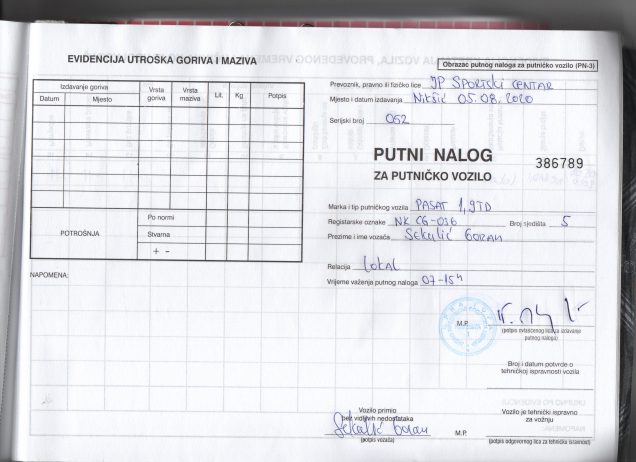 EVIDENCIJA UTROŠKA GORIVA I MAZIVA
Izdavanje goriva
Datum Mjesto Vrsta goriva Vrsta maziva Lit. Kg Potpis
POTROŠNJA
Po normi
Stvarna
+ -
NAPOMENA:
Obrazac putnog naloga za putničko vozilo (PN-3)
Prevoznik, pravno ili fizičko lice JP SPORTSKI CENTAR
Mjesto i datum izdavanja Nikšić 05.08.2020
Serijski broj 052
PUTNI NALOG
386789
ZA PUTNIČKO VOZILO
Marka i tip putničkog vozila PASAT 1,9TD
Registarske oznake NK CG-036 Broj sjedišta 5
Prezime i ime vozača Sekulić Goran
Relacija Lokal
Vrijeme važenja putnog naloga 07-15h
M.P.
(potpis ovlašćenog lica za izdavanje
putnog naloga)
Broj i datum potvrde o
tehničkoj ispravnosti vozila
Vozilo primio
bez vidljivih nedostataka
Sekulić Goran
(potpis vozača)
M.P.
Vozilo je tehnički ispravno
za vožnju
(potpis odgovornog lica za tehničku ispravnost)